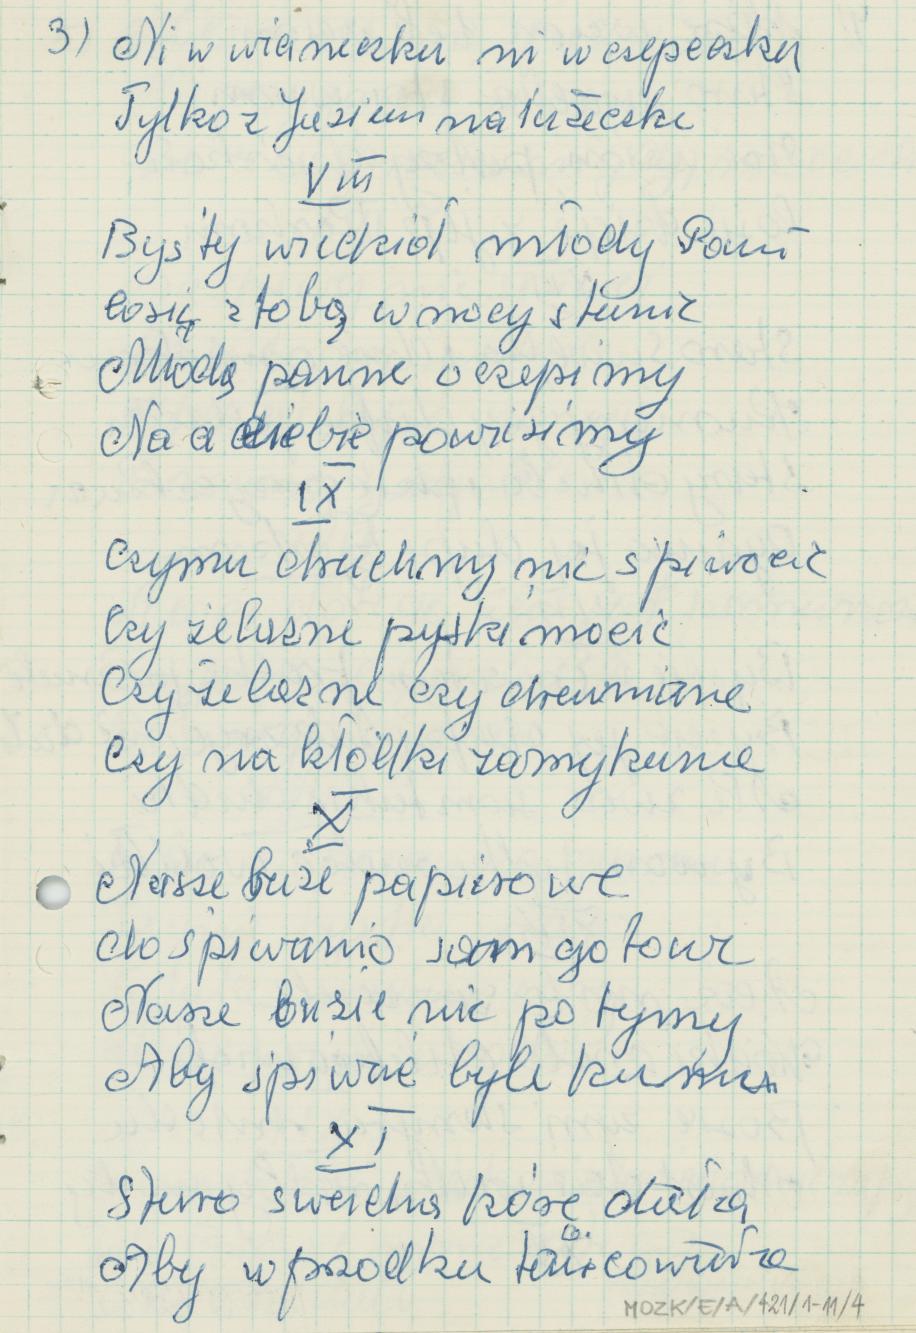 3) Ni w wianeczku ni w czepeczku
Tylko z Juziem na łużeczku
VIII
Byś ty wiedkioł młody Panie
co się z tobą w nocy stanie
Młodą panne oczepimy
Na a ciebie powisimy
IX
Czymu druchny nie śpiwocie
Czy żelazne pyski mocie
Czy żelazne czy drewniane
Czy na kłódki zamykane
X
Nasze buze papirowe
do śpiwanio som gotowe
Nasze buzie nie po tymy
Aby śpiwać byle kumu
XI
Staro swachą kóze
Aby w przodku tańcowała
MOZK/E/A/421/1-11/4